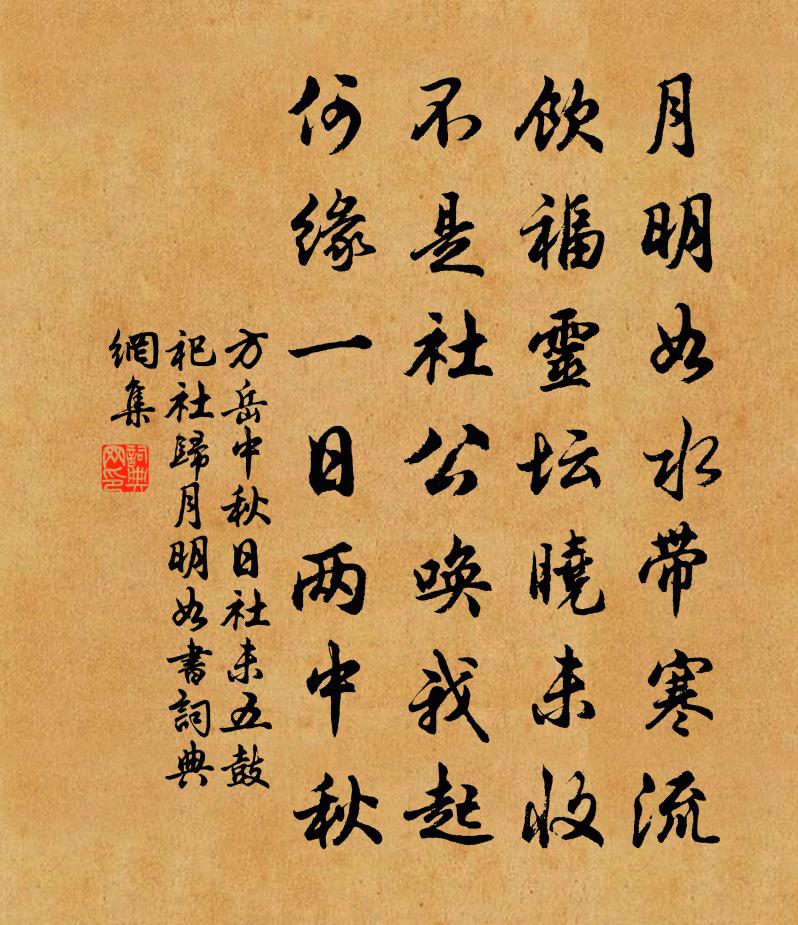 月明如水带寒流
飲福靈坛曉未收
不是社公唤我起
何缘一日两中秋
方岳中秋日社未五鼓
祀社歸月明如書詞典
網集
詞典
网印